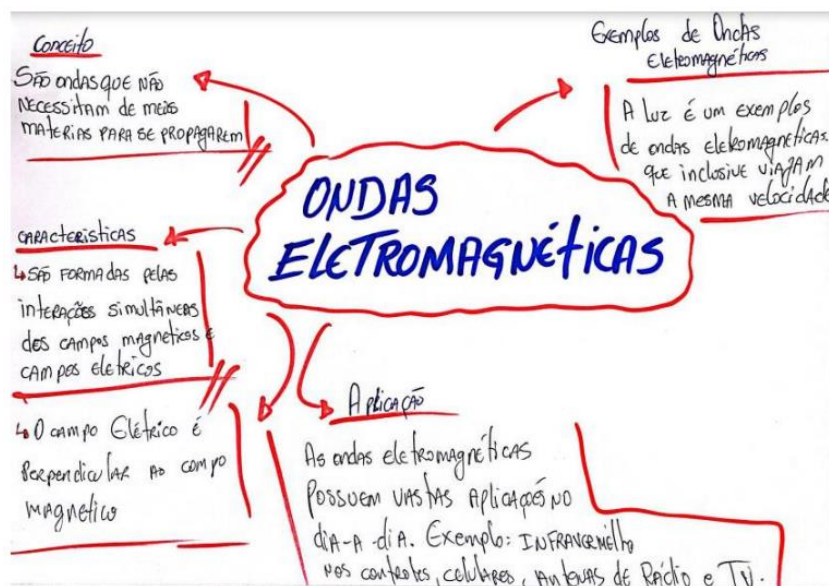 Conceito
São ondas que não
necessitam de meios
materias para se propagarem
Exemplos de Ondas
Eletomagnéticas
A luz é um exemplos
de ondas eletromagnéticas.
que inclusive viajam
a mesma velocidade
ONDAS
ELETROMAGNÉTICAS
Características
São formadas pelas
interações simultâneas
dos campos magneticos e
campos eletricos
O campo Elétrico é
perpendicular ao campo
magnético
Aplicação
As ondas eletromagnéticas
possuem vastas aplicações no
dia-a-dia. Exemplo: Infravermelho
nos controles, celulares, antenas de Rádio e TV.